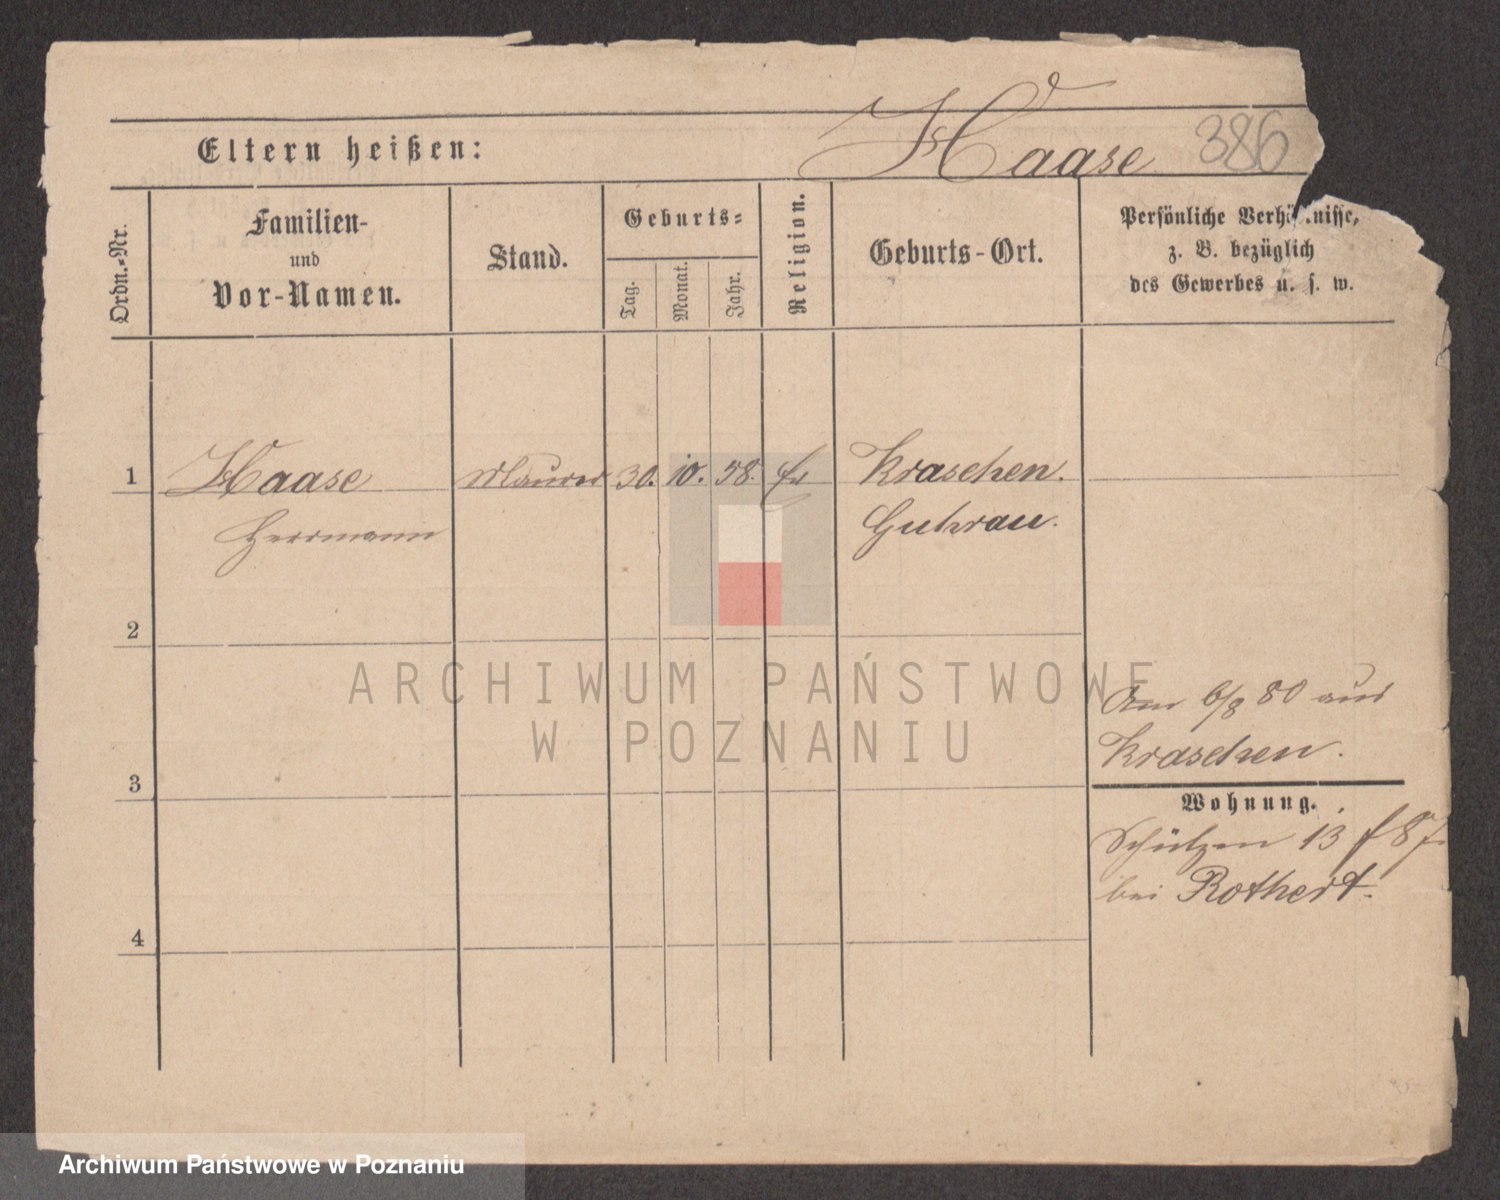 Eltern heißen:
Haase 386
Ordn.-Nr.
Familien-
und
Vor-Namen.
Stand.
Geburts-
Tag.
Monat.
Jahr.
Religion.
Geburts-Ort.
Persönliche Verhältnisse,
z. B. bezüglich
des Gewerbes u. s. w.
1 Haase Maurer 30. 10. 58. Ev Kraschen.
Herrmann Guhrau.
2
Am 6/8 80 aus
Kraschen.
3
Wohnung.
Schützen 13
bei Rothert.
4
ARCHIWUM PAŃSTWOWE
W POZNANIU
Archiwum Państwowe w Poznaniu